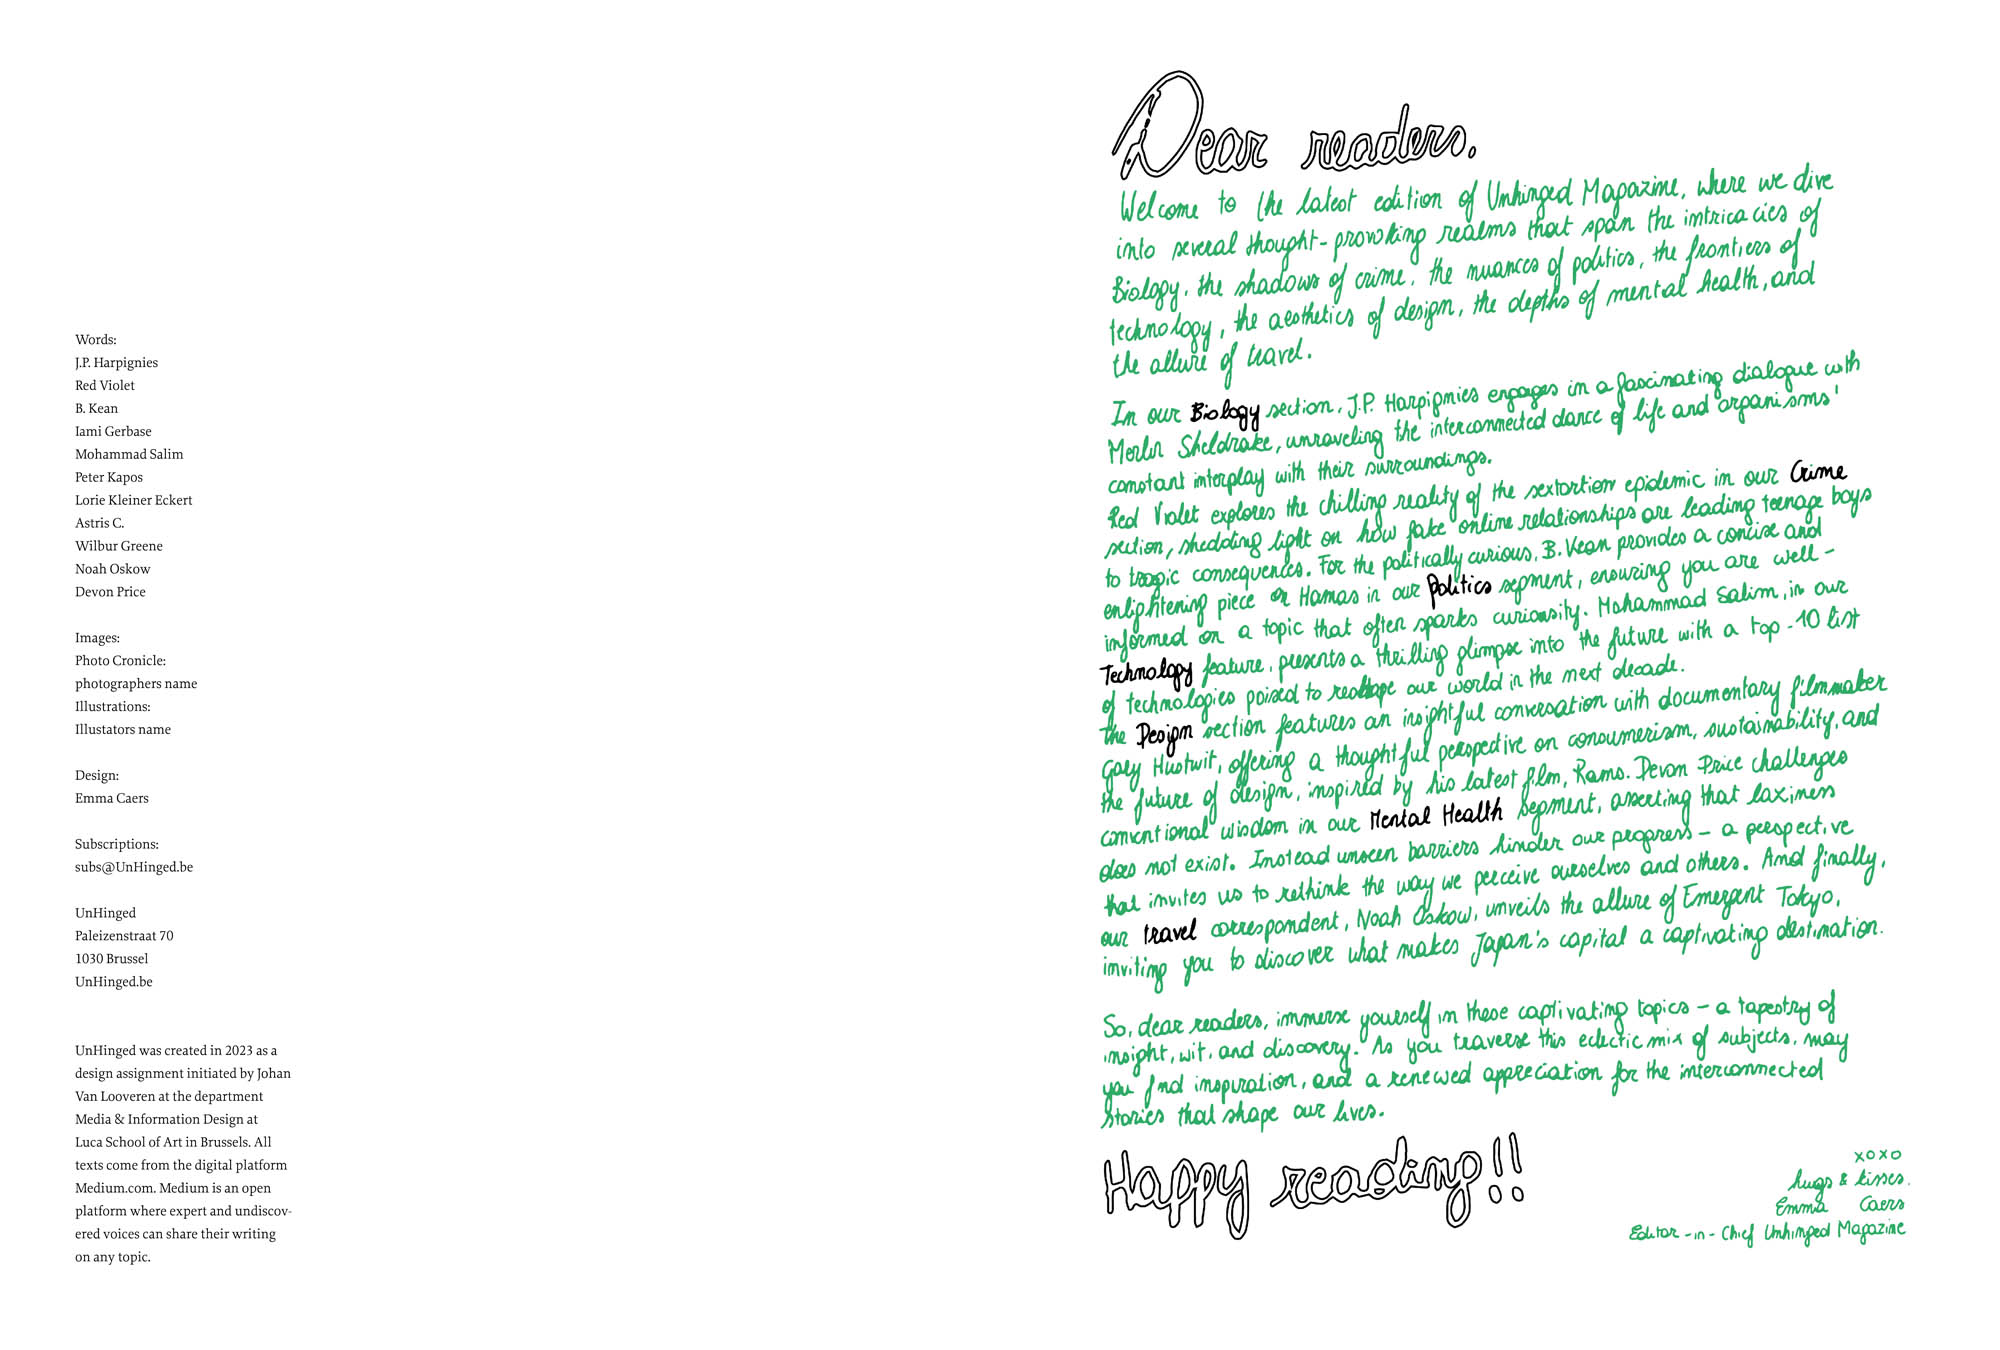 Words:
J.P. Harpignies
Red Violet
B. Kean
Iami Gerbase
Mohammad Salim
Peter Kapos
Lorie Kleiner Eckert
Astris C.
Wilbur Greene
Noah Oskow
Devon Price
Images:
Photo Cronicle:
photographers name
Illustrations:
Illustators name
Design:
Emma Caers
Subscriptions:
subs@UnHinged.be
UnHinged
Paleizenstraat 70
1030 Brussel
UnHinged.be
UnHinged was created in 2023 as a
design assignment initiated by Johan
Van Looveren at the department
Media & Information Design at
Luca School of Art in Brussels. All
texts come from the digital platform
Medium.com. Medium is an open
platform where expert and undiscov-
ered voices can share their writing
on any topic.
Dear readers,
Welcome to the latest edition of Unhinged Magazine, where we dive
into several thought-provoking realms that span the intricacies of
Biology, the shadows of crime, the nuances of politics, the frontiers of
technology, the aesthetics of design, the depths of mental health, and
the allure of travel.
In our Biology section, J.P. Harpignies engages in a fascinating dialogue with
Merlin Sheldrake, unraveling the interconnected dance of life and organisms'
constant interplay with their surroundings.
Red Violet explores the chilling reality of the sextortion epidemic in our Crime
section, shedding light on how fake online relationships are leading teenage boys
to tragic consequences. For the politically curious, B. Kean provides a concise and
enlightening piece on Hamas in our Politics segment, ensuring you are well-
informed on a topic that often sparks curiousity. Mohammad Salim, in our
Technology feature, presents a thrilling glimpse into the future with a top-10 list
of technologies poised to reshape our world in the next decade.
The Design section features an insightful conversation with documentary filmmaker
Gary Hustwit, offering a thoughtful perspective on consumerism, sustainability, and
the future of design, inspired by his latest film, Rams. Devon Price challenges
conventional wisdom in our Mental Health segment, asserting that laziness
does not exist. Instead unseen barriers hinder our progress – a perspective
that invites us to rethink the way we perceive ourselves and others. And finally,
our travel correspondent, Noah Oskow, unveils the allure of Emergent Tokyo,
inviting you to discover what makes Japan's capital a captivating destination.
So, dear readers, immerse yourself in these captivating topics – a tapestry of
insight, wit, and discovery. As you traverse this eclectic mix of subjects, may
you find inspiration, and a renewed appreciation for the interconnected
stories that shape our lives.
Happy reading!!
xoxo
hugs & kisses.
Emma Caers
Editor-in-Chief Unhinged Magazine